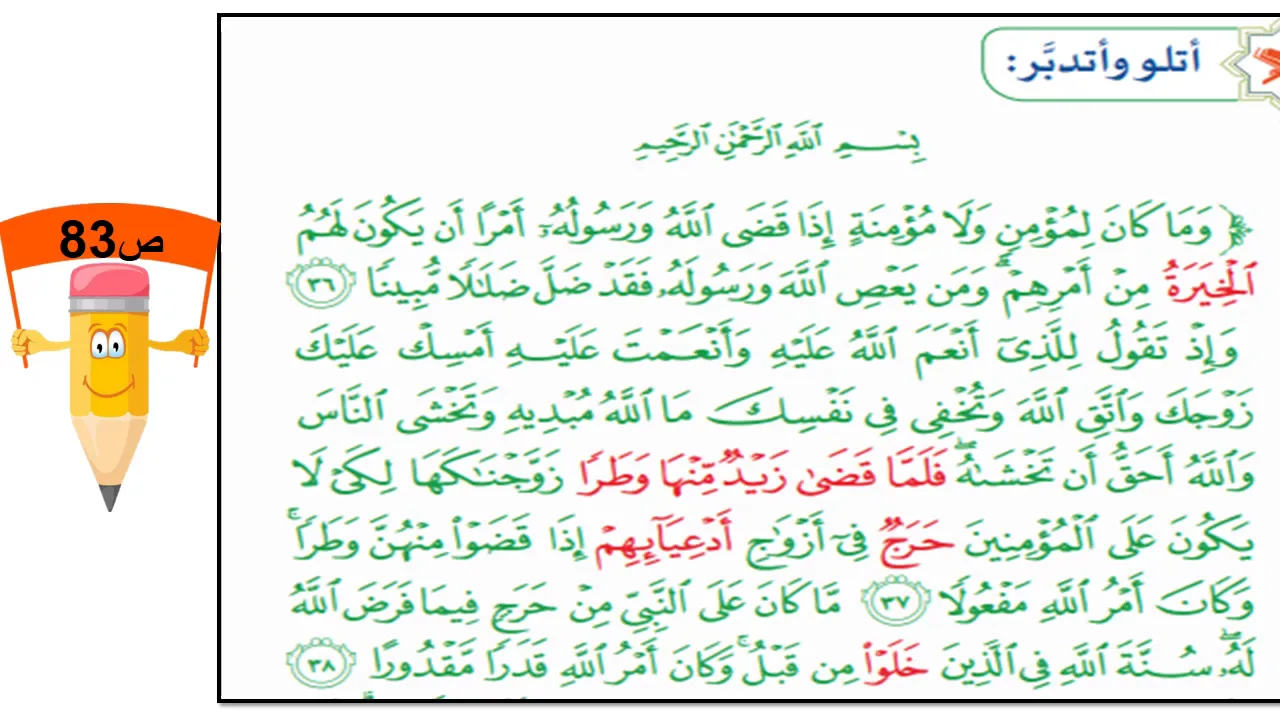 أتلو وأتدبَّر:
بِسْمِ ٱللَّهِ ٱلرَّحْمَٰنِ ٱلرَّحِيمِ
﴿ وَمَا كَانَ لِمُؤْمِنٍ وَلَا مُؤْمِنَةٍ إِذَا قَضَى ٱللَّهُ وَرَسُولُهُۥٓ أَمْرًا أَن يَكُونَ لَهُمُ
ٱلْخِيَرَةُ مِنْ أَمْرِهِمْ ۗ وَمَن يَعْصِ ٱللَّهَ وَرَسُولَهُۥ فَقَدْ ضَلَّ ضَلَٰلًا مُّبِينًا ٣٦
وَإِذْ تَقُولُ لِلَّذِىٓ أَنْعَمَ ٱللَّهُ عَلَيْهِ وَأَنْعَمْتَ عَلَيْهِ أَمْسِكْ عَلَيْكَ
زَوْجَكَ وَٱتَّقِ ٱللَّهَ وَتُخْفِى فِى نَفْسِكَ مَا ٱللَّهُ مُبْدِيهِ وَتَخْشَى ٱلنَّاسَ
وَٱللَّهُ أَحَقُّ أَن تَخْشَىٰهُ ۖ فَلَمَّا قَضَىٰ زَيْدٌ مِّنْهَا وَطَرًا زَوَّجْنَٰكَهَا لِكَىْ لَا
يَكُونَ عَلَى ٱلْمُؤْمِنِينَ حَرَجٌ فِىٓ أَزْوَٰجِ أَدْعِيَآئِهِمْ إِذَا قَضَوْا۟ مِنْهُنَّ وَطَرًا ۚ
وَكَانَ أَمْرُ ٱللَّهِ مَفْعُولًا ٣٧ مَّا كَانَ عَلَى ٱلنَّبِىِّ مِنْ حَرَجٍ فِيمَا فَرَضَ ٱللَّهُ
لَهُۥ ۖ سُنَّةَ ٱللَّهِ فِى ٱلَّذِينَ خَلَوْا۟ مِن قَبْلُ ۚ وَكَانَ أَمْرُ ٱللَّهِ قَدَرًا مَّقْدُورًا ٣٨
ص83